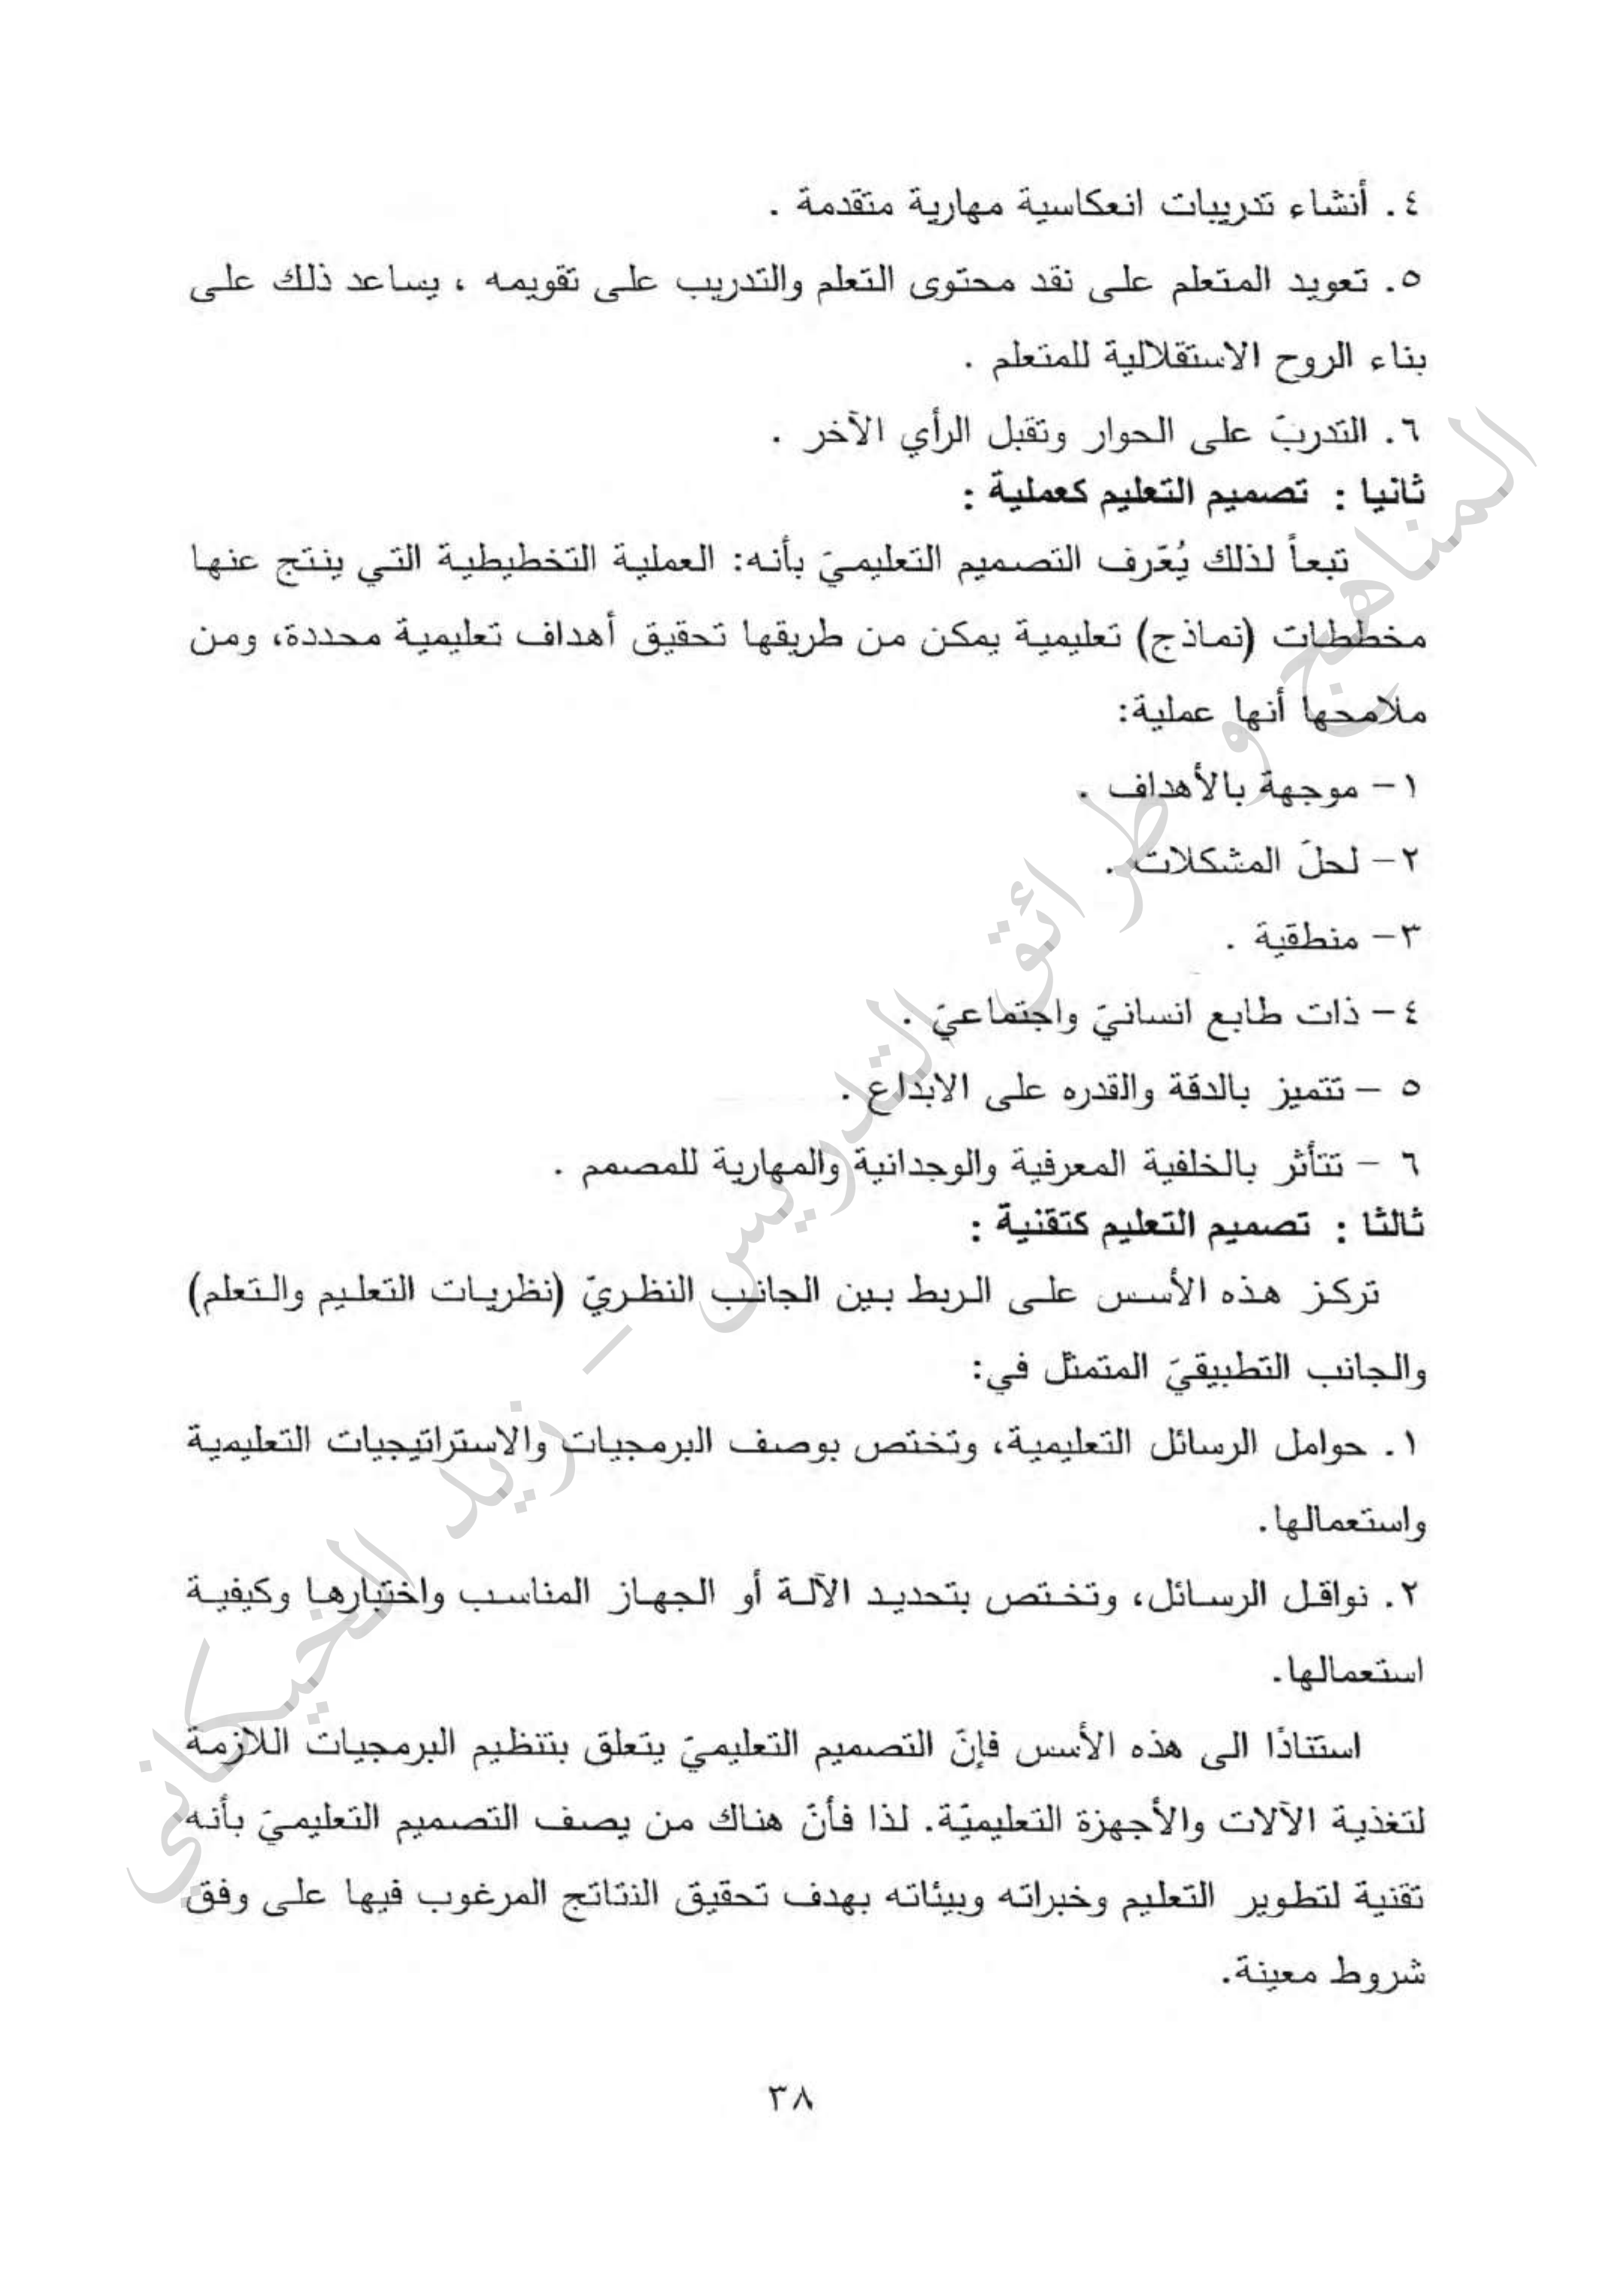 ٤. أنشاء تدريبات انعكاسية مهارية متقدمة .
٥. تعويد المتعلم على نقد محتوى التعلم والتدريب على تقويمه ، يساعد ذلك على
بناء الروح الاستقلالية للمتعلم .
٦. التدربّ على الحوار وتقبل الرأي الآخر .
ثانيا : تصميم التعليم كعملية :
تبعاً لذلك يُعّرف التصميم التعليميّ بأنه: العملية التخطيطية التي ينتج عنها
مخططات (نماذج) تعليمية يمكن من طريقها تحقيق أهداف تعليمية محددة، ومن
ملامحها أنها عملية:
١- موجهة بالأهداف .
٢- لحلّ المشكلات .
٣- منطقية .
٤- ذات طابع انسانيّ واجتماعيّ .
٥ - تتميز بالدقة والقدره على الابداع .
٦ - تتأثر بالخلفية المعرفية والوجدانية والمهارية للمصمم .
ثالثا : تصميم التعليم كتقنية :
تركز هذه الأسس على الربط بين الجانب النظريّ (نظريات التعليم والتعلم)
والجانب التطبيقيّ المتمثل في:
١. حوامل الرسائل التعليمية، وتختص بوصف البرمجيات والاستراتيجيات التعليمية
واستعمالها.
٢. نواقل الرسائل، وتختص بتحديد الآلة أو الجهاز المناسب واختبارها وكيفية
استعمالها.
استنادًا الى هذه الأسس فإنّ التصميم التعليميّ يتعلق بتنظيم البرمجيات اللازمة
لتغذية الآلات والأجهزة التعليميّة. لذا فأنّ هناك من يصف التصميم التعليميّ بأنه
تقنية لتطوير التعليم وخبراته وبيئاته بهدف تحقيق النتائج المرغوب فيها على وفق
شروط معينة.
٣٨
المناهج و طرائق التدريس - زيد الخيكاني